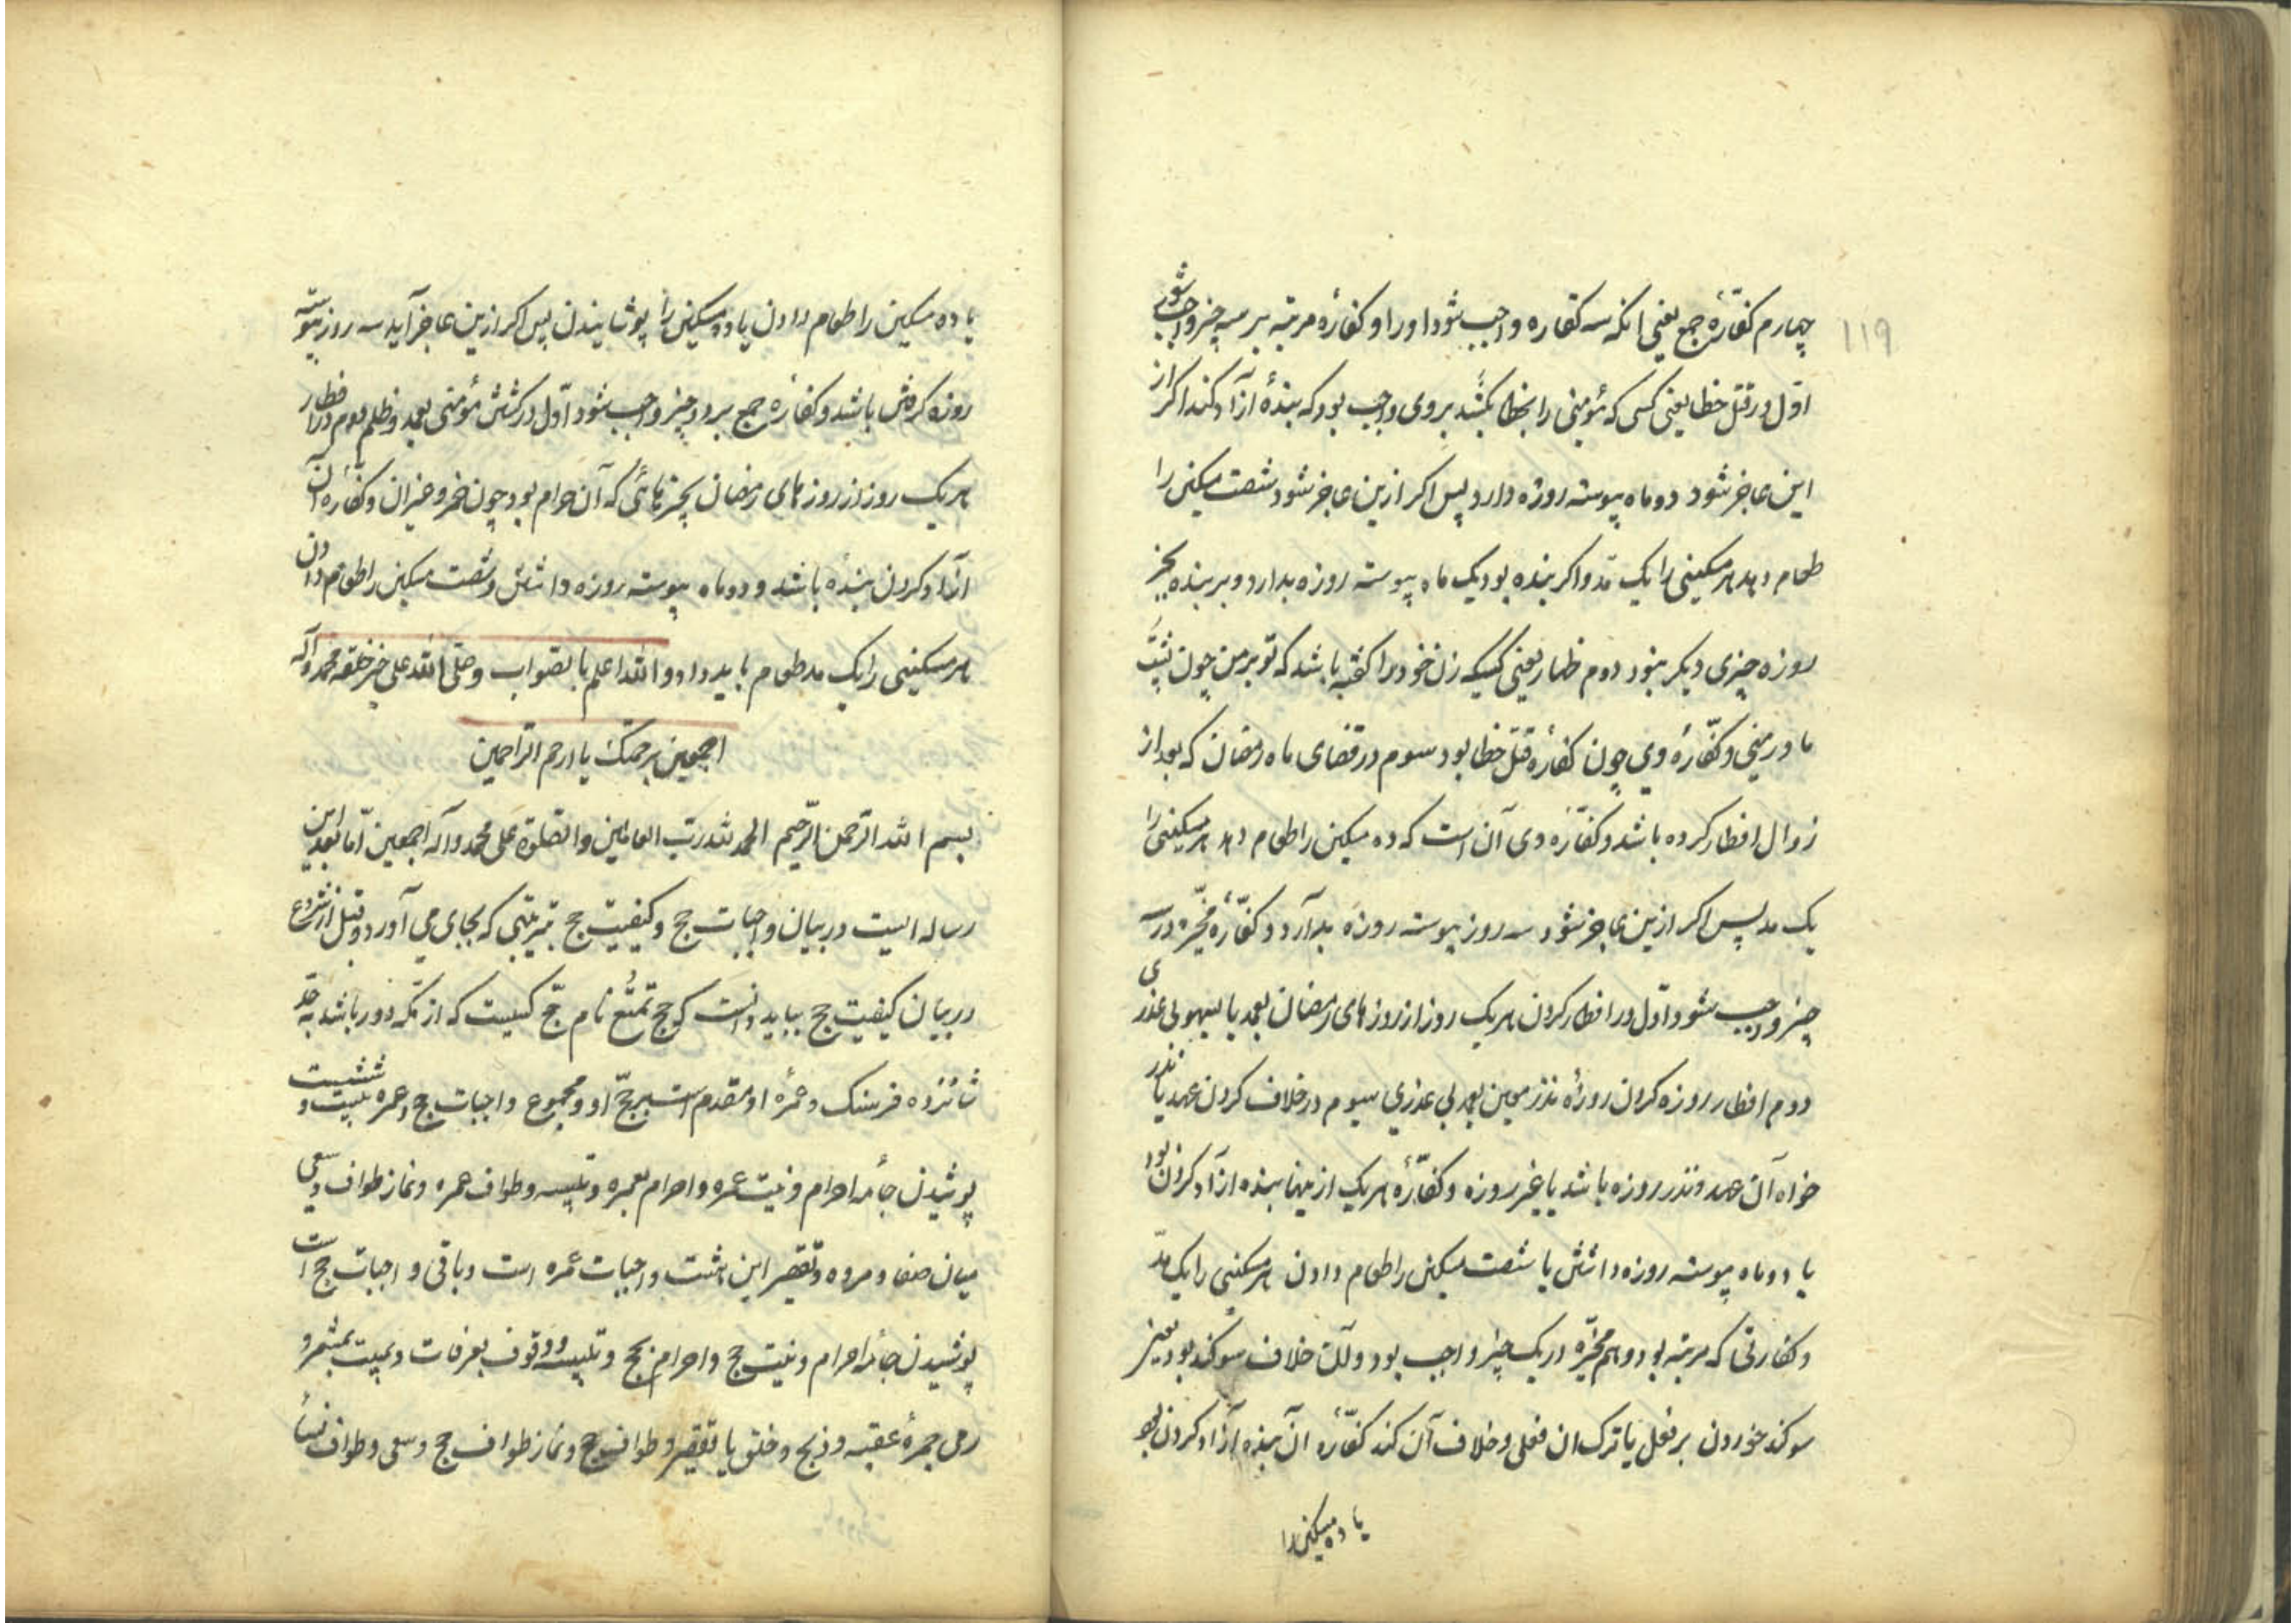 ۱۱۹
چهارم کفّارهٔ جمع یعنی انکه سه کفاره واجب شود او را و کفارهٔ مرتبه بر سه چیز واجب شود
اوّل در قتل خطا یعنی کسی که مؤمنی را بخطا بکشد بر وی واجب بود که بندهٔ آزاد کند اکر از
این عاجز شود دو ماه پیوسته روزه دارد پس اکر ازین عاجز شود شصت مسکین را
طعام دهد هر مسکینی را یک مدّ و اکر بنده بود یک ماه پیوسته روزه بدارد و بر بنده بجز
روزه چیزی دیکر نبود دوم ظهار یعنی کسیکه زن خود را کفته باشد که تو بر من چون پشت
مادر منی و کفّارهٔ وی چون کفارهٔ قتل خطا بود سوم در قضای ماه رمضان که بعد از
زوال افطار کرده باشد و کفّارهٔ وی آن است که ده مسکین را طعام دهد هر مسکینی را
یک مد پس اکر ازین عاجز شود سه روز پیوسته روزه بدارد و کفّارهٔ مخیّره در سه
چیز واجب شود اوّل در افطار کردن هر یک روز از روزهای رمضان بعمد یا بسهو بی عذری
دوم افطار روزه کردن روزهٔ نذر معین بعمد بی عذری سیوم در خلاف کردن عهد یا نذر
خواه آن عهد و نذر روزه باشد یا غیر روزه و کفّارهٔ هر یک ازینها بنده ازاد کردن بود
یا دو ماه پیوسته روزه داشتن یا شصت مسکین را طعام دادن هر مسکینی را یک مدّ
و کفارتی که مرتبه بود و هم مخیّره در یک چیز واجب بود و آن خلاف سوکند بود یعنی
سوکند خوردن بر فعل یا ترک ان فعلی و خلاف آن کند کفّارهٔ ان بنده آزاد کردن بود
یا ده مسکین را
یا ده مسکین را طعام دادن یا ده مسکین را پوشانیدن پس اکر ازین عاجز آید سه روز پیوسته
روزه کرفتن باشد و کفارهٔ جمع بر دو چیز واجب شود اوّل در کشتن مؤمنی بعمد و ظلم دوم در افطار
هر یک روز از روزهای رمضان بچیزهائی که آن حرام بود چون خمر و خیزان و کفّارهٔ آن
آزاد کردن بنده باشد و دو ماه پیوسته روزه داشتن و شصت مسکین را طعام دادن
هر مسکینی را یک مد طعام باید داد و الله اعلم بالصواب و صلّی الله علی خیر خلقه محمد و آله
اجمعین برحمتک یا ارحم الراحمین
بسم الله الرحمن الرّحیم الحمد لله ربّ العالمین والصّلوة علی محمد و آله اجمعین امّا بعد این
رساله ایست در بیان واجبات حج و کیفیت حج بترتیبی که بجای می آورد و قبل از شروع
در بیان کیفیت حج بباید دانست که حج تمتّع نام حجّ کسیست که از مکّه دور باشد به حدّ
شانزده فرسنک و عمرهٔ او مقدم است بر حجّ او و مجموع واجبات حج و عمره بیست و ششست
پوشیدن جامهٔ احرام و نیت عمره و احرام بعمره و تلبیه و طواف عمره و نماز طواف و سعی
میان صفا و مروه و تقصیر این هشت واجبات عمره است و باقی واجبات حج است
پوشیدن جامهٔ احرام و نیت حج و احرام بحج و تلبیه و وقوف بعرفات و مبیت بمشعر و
رمی جمرهٔ عقبه و ذبح و حلق یا تقصیر و طواف حج و نماز طواف حج و سعی و طواف نسأ